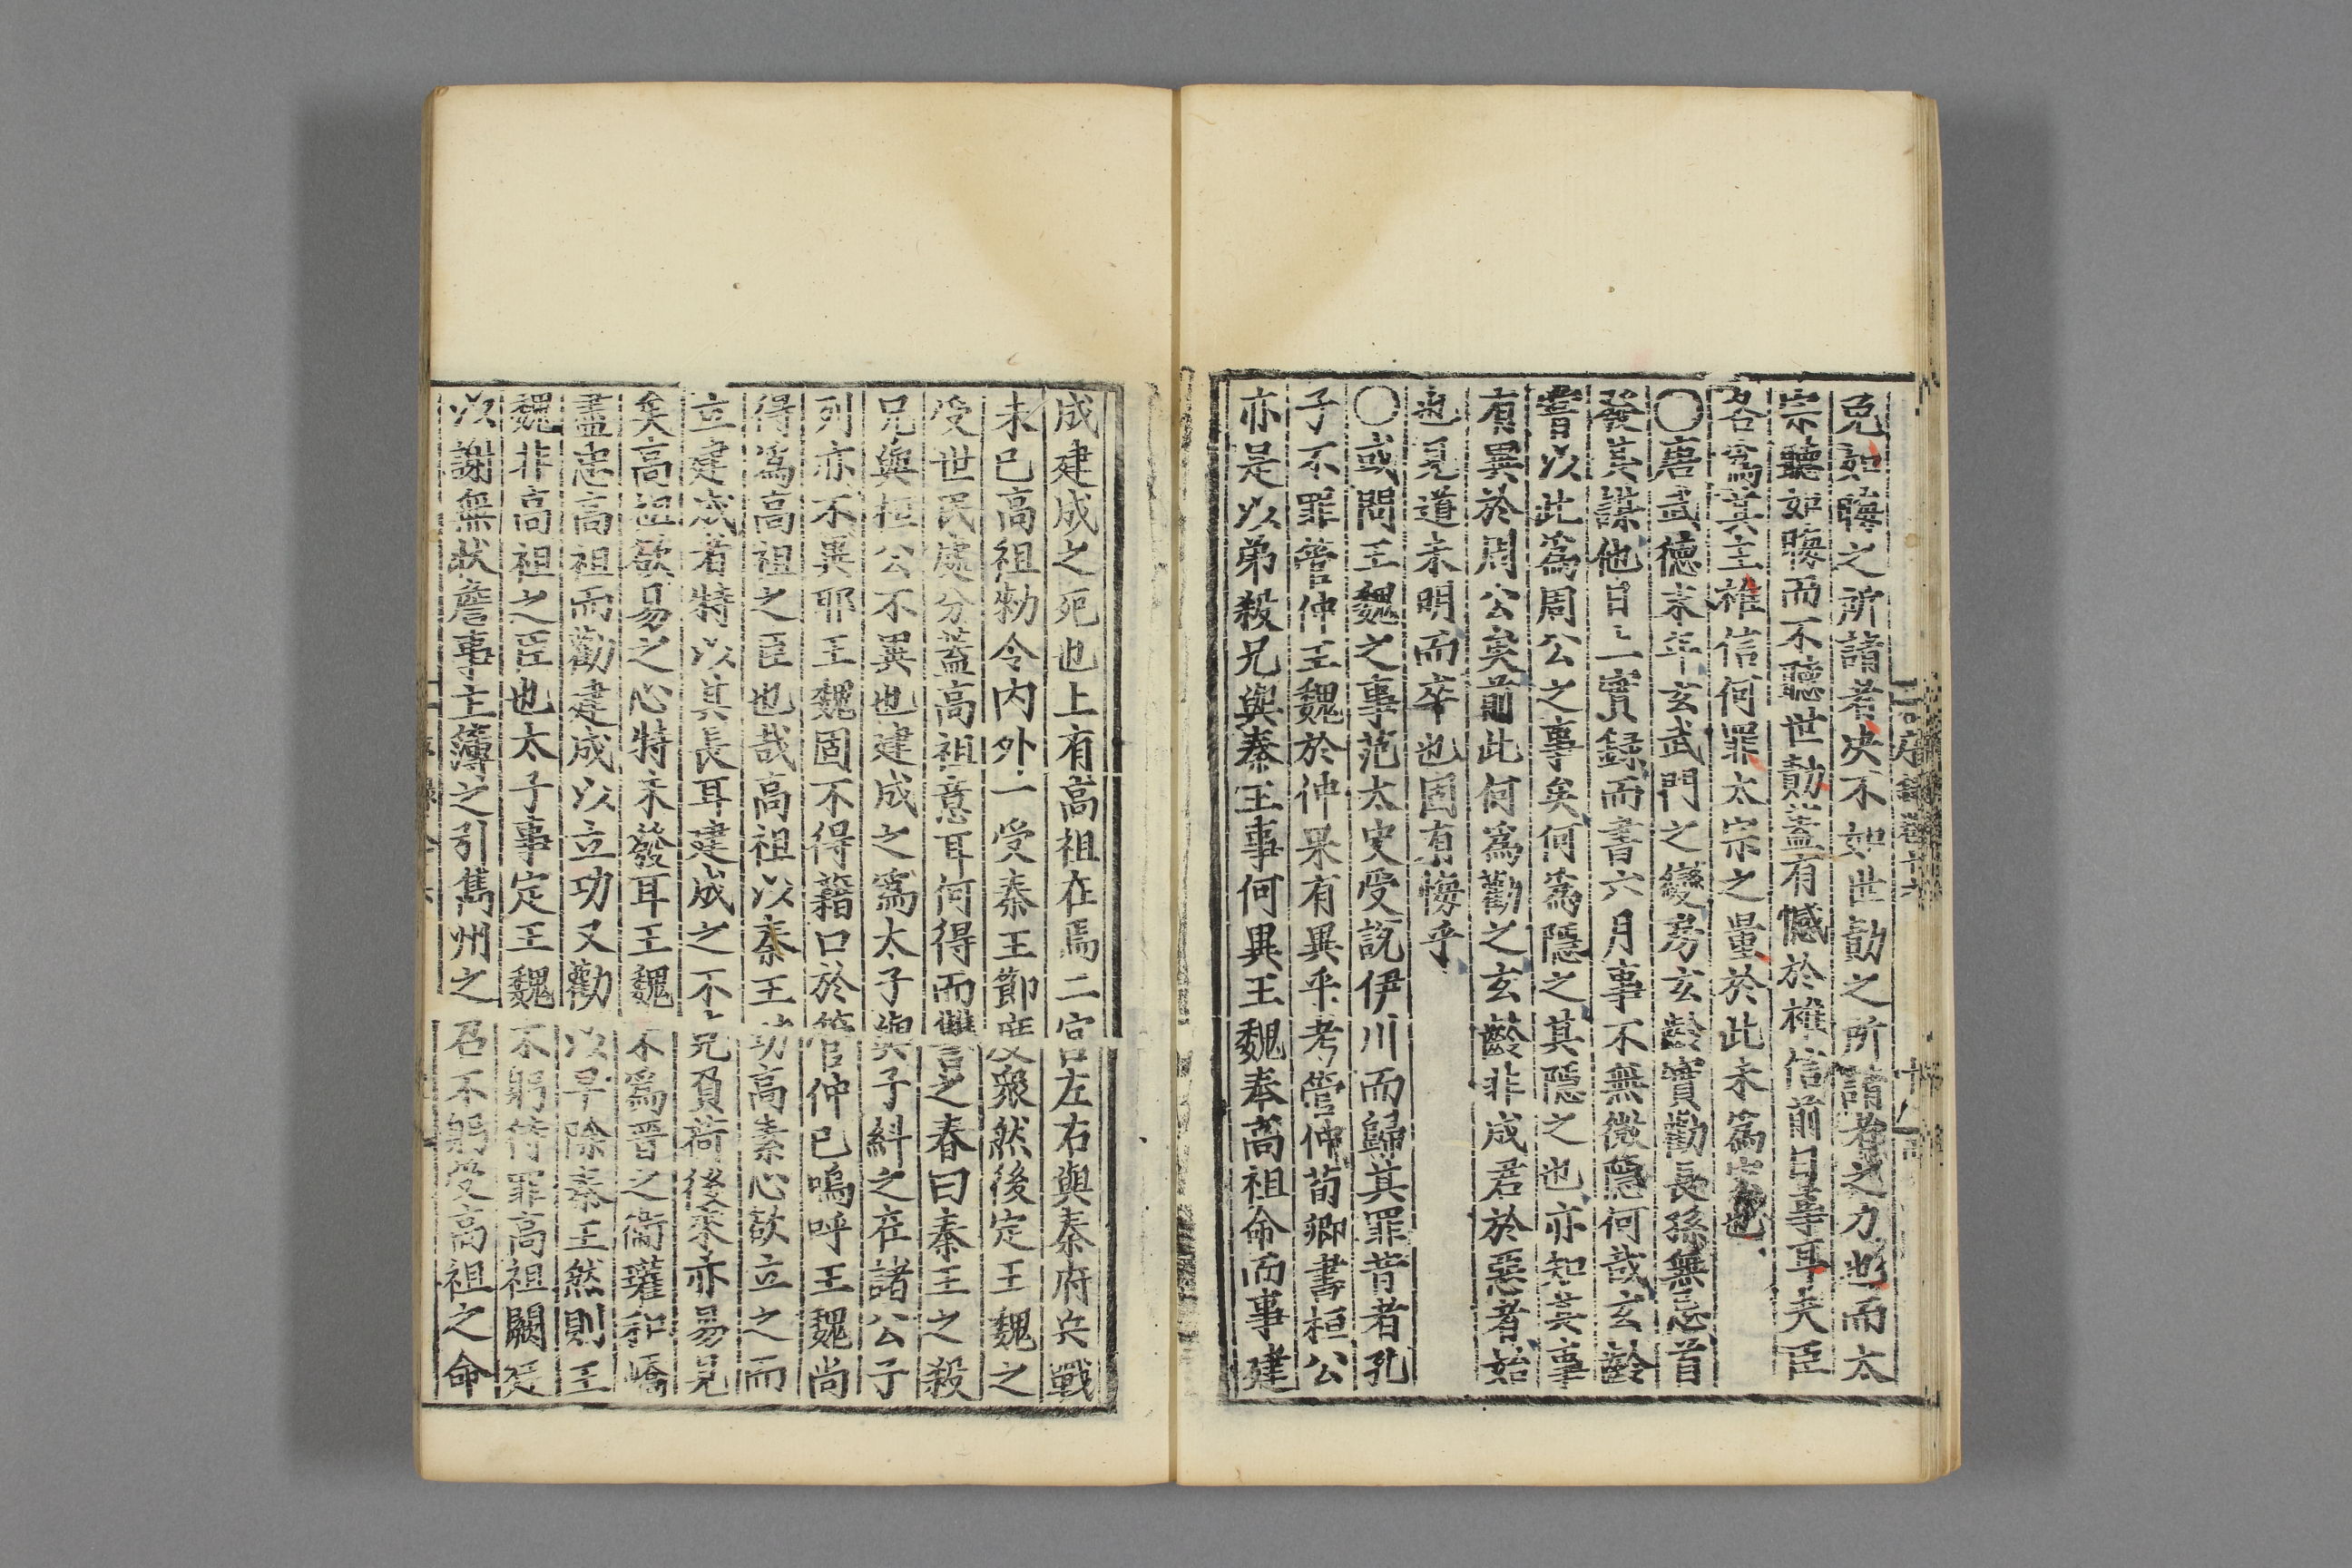 免如晦之所請者决不如世勣之所請者之力也而太
宗聽如晦而不聽世勣蓋有憾於稚信前日事耳夫臣
各爲其主稚信何罪太宗之量於此未爲宏也
〇唐武德末年玄武門之變房玄齡實勸長孫無忌首
發其謀他日上實録而書六月事不無微隱何哉玄齡
嘗以此爲周公之事矣何爲隱之其隱之也亦知其事
有異於周公矣前此何爲勸之玄齡非成君於惡者始
也見道未明而卒也固有悔乎
〇或問王魏之事范太史受説伊川而歸其罪昔者孔
子不罪管仲王魏於仲果有異乎考管仲荀卿書桓公
亦是以弟殺兄與秦王事何異王魏奉高祖命而事建
成建成之死也上有高祖在焉二宮左右與秦府兵戰
未已高祖勑令内外一受秦王節度衆然後定王魏之
受世民處分蓋高祖意耳何得而讐之春曰秦王之殺
兄與桓公不異也建成之爲太子與子糾之在諸公子
列亦不異耶王魏固不得籍口於管仲已嗚呼王魏尚
得爲高祖之臣也哉高祖以秦王功高素心欲立之而
立建成者特以其長耳建成之不克負荷後來亦易見
矣高祖欲易之心特未發耳王魏不爲晋之衞瓘和嶠
盡忠高祖而勸建成以立功又勸以早除秦王然則王
魏非高祖之臣也太子事定王魏不躬待罪高祖闕廷
以謝無狀詹事主簿之引雋州之召不躬受高祖之命